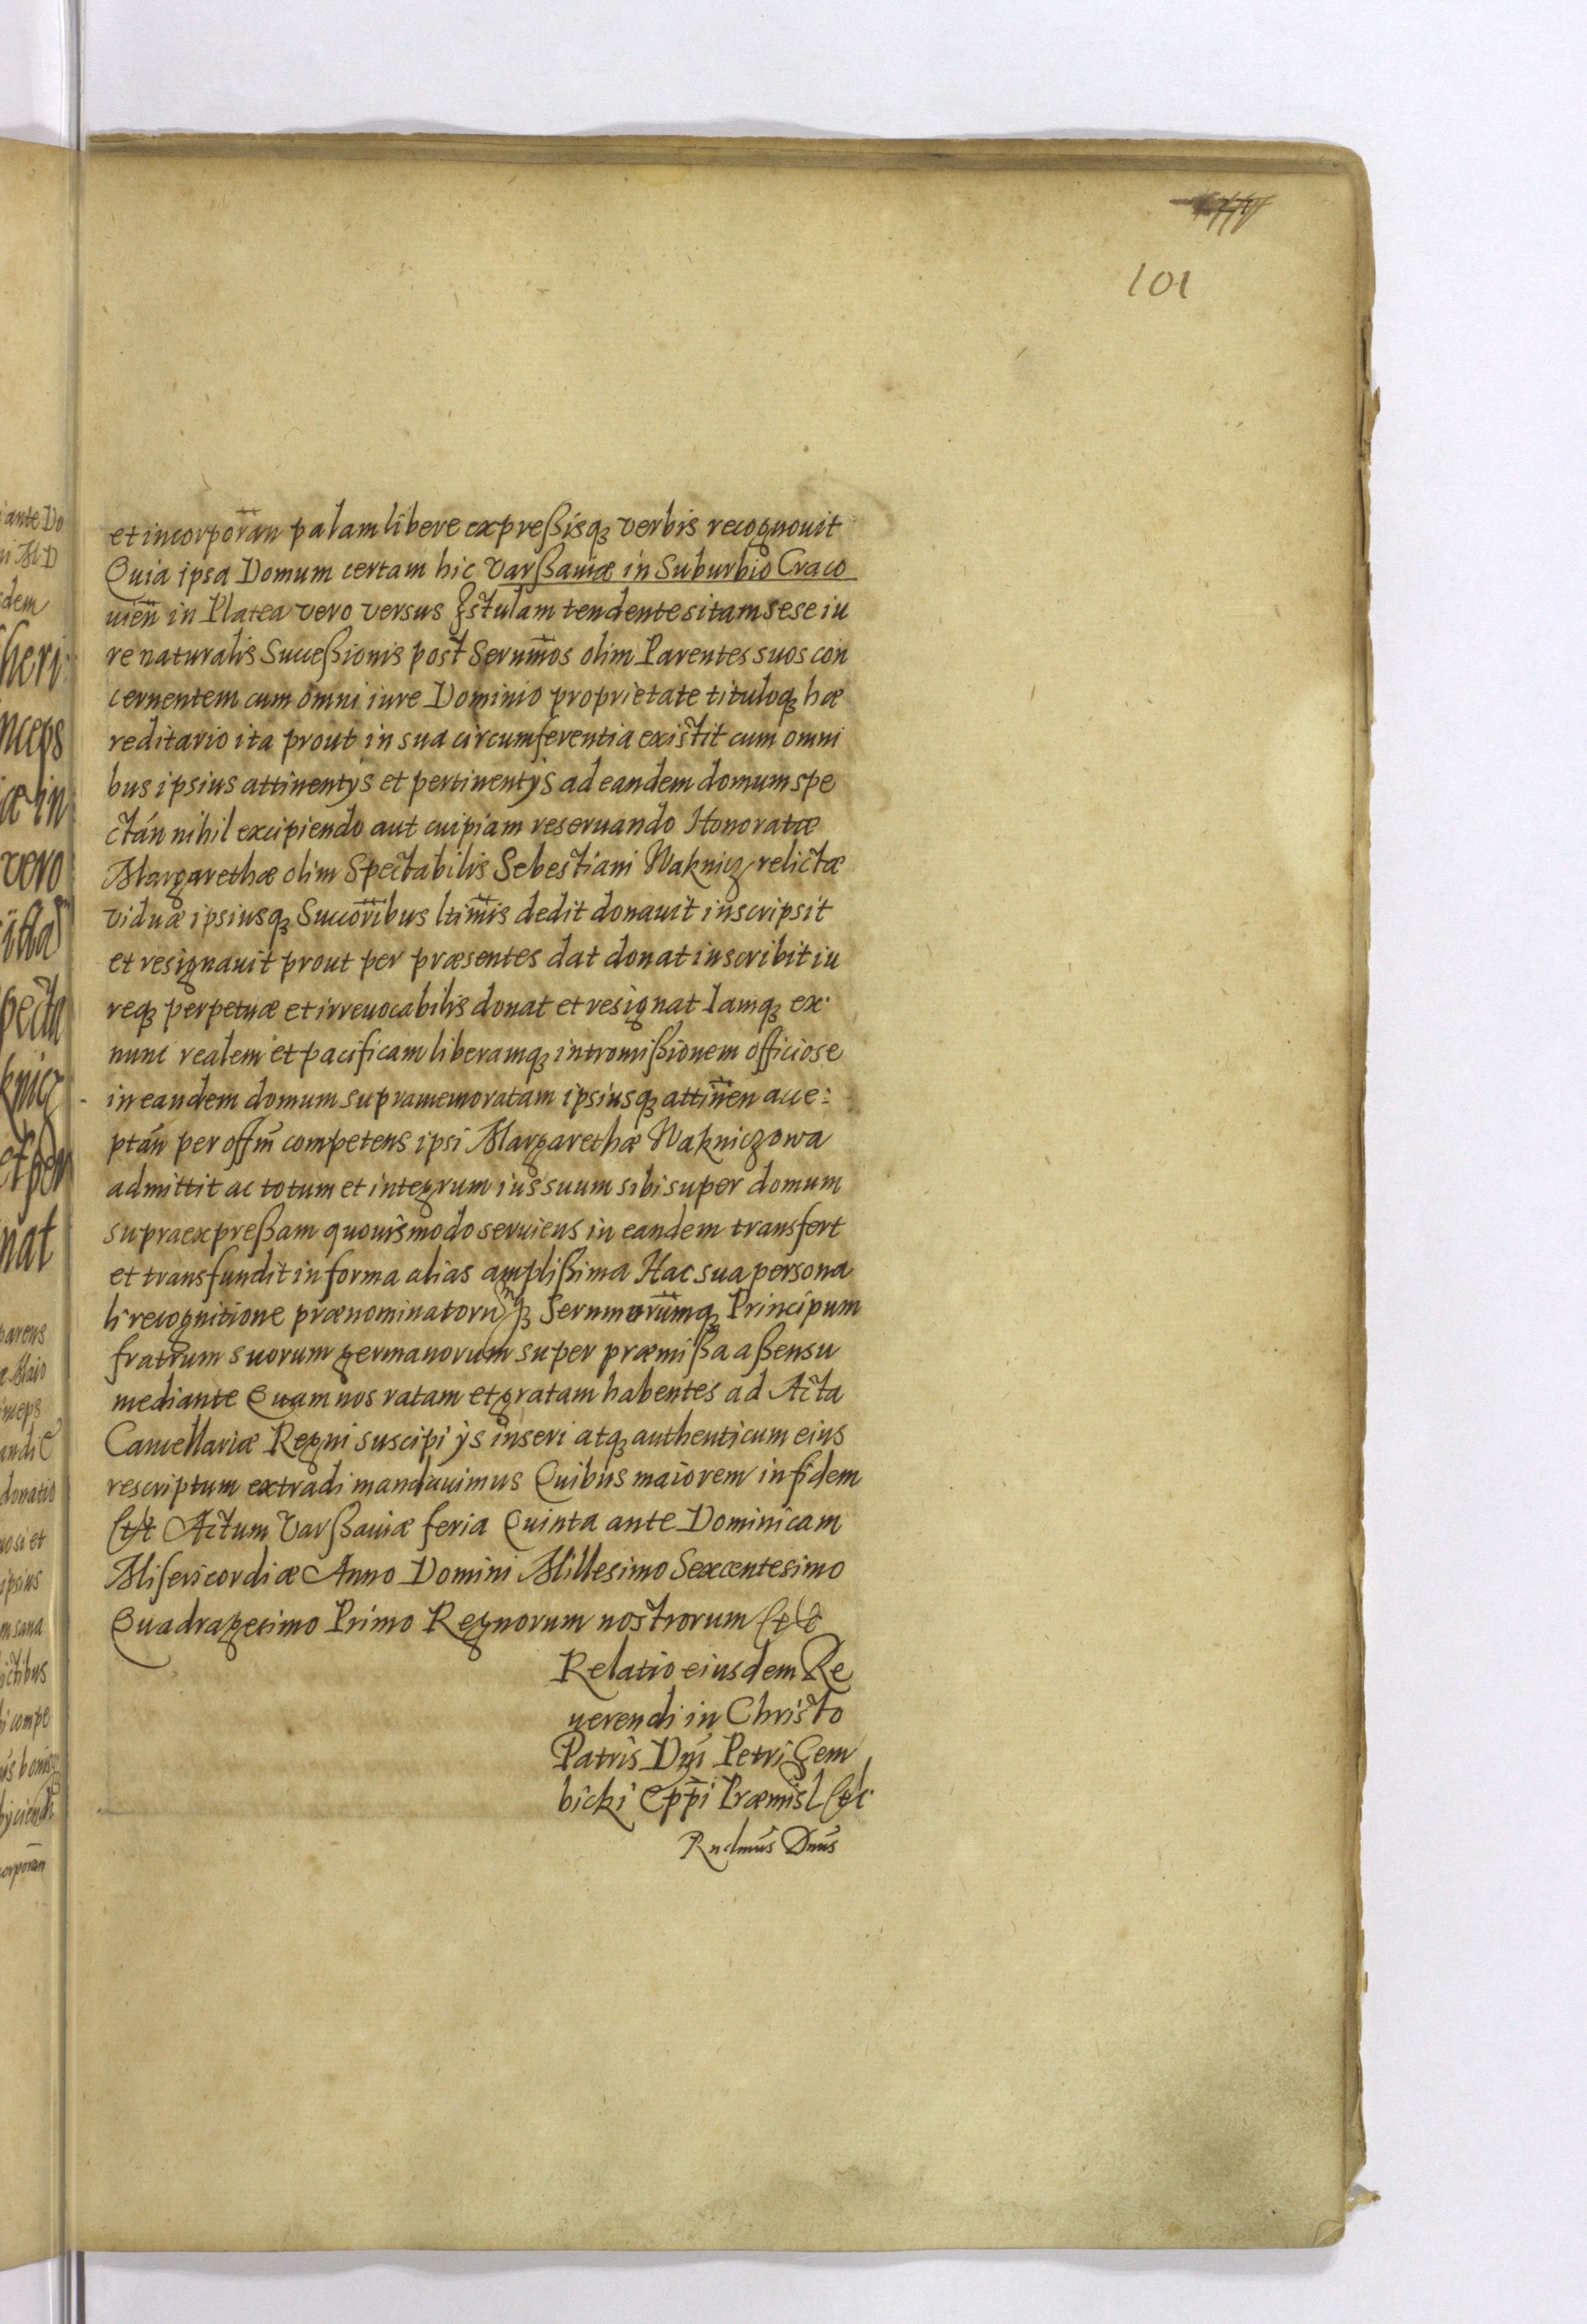 101
et incorporan̄ palam libere expreßisq₃ verbis recognouit
Quia ipsa Domum certam hic Varßauiæ in Suburbio Craco
uien̄ in Platea vero versus Istulam tendente sitam sese iu
re naturalis Succeßionis post Serenīmos olim Parentes suos con
cernentem cum omni iure Dominio proprietate tituloq₃ hæ
reditario ita prout in sua circumferentia existit cum omni
bus ipsius attinentÿs et pertinentÿs ad eandem domum spe
ctān nihil excipiendo aut cuipiam reseruando Honoratæ
Margarethæ olim Spectabilis Sebestiani Waknicz relictæ
viduæ ipsiusq₃ Succor̄ibus ltim̄is dedit donauit inscripsit
et resignauit prout per præsentes dat donat inscribit iu
req₃ perpetuæ et irreuocabilis donat et resignat Iamq₃ ex
nunc realem et pacificam liberamq₃ intromißionem officiose
in eandem domum supramemoratam ipsiusq₃ attin̄en acce:
ptān per offm̄ competens ipsi Margarethæ Wakniczowa
admittit ac totum et integrum ius suum sibi super domum
supraexpreßam quouismodo seruiens in eandem transfert
et transfundit in forma alias amplißima Hac sua persona
li recognitione prænominatorumq₃ Sernmorūmq₃ Principum
fratrum suorum germanorum super præmißa aßensu
mediante Quam nos ratam et gratam habentes ad Acta
Cancellariæ Regni suscipi ÿs inseri atq₃ authenticum eius
rescriptum extradi mandauimus Quibus maiorem in fidem
Etc Actum Varßauiæ feria Quinta ante Dominicam
Misericordiæ Anno Domini Millesimo Sexcentesimo
Quadragesimo Primo Regnorum nostrorum Etc
Relatio eiusdem Re
uerendi in Christo
Patris Dnī Petri Gem
bicki Epp̄i Præmisl Etc
Rndmūs Dnūs